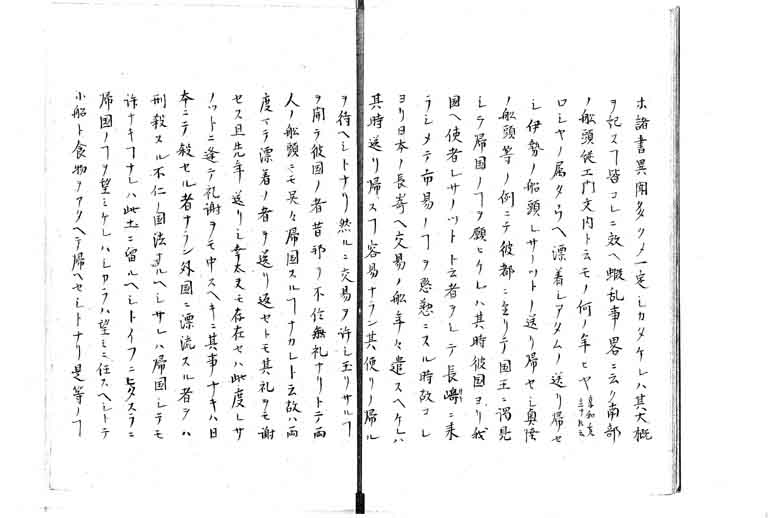 ホ諸書異聞多クメ一定シカタケレハ其大概
ヲ記スヿ皆コレニ效ヘ蝦乱事畧ニ云ク南部
ノ船頭徒エ門文内ト云モノ何ノ年ヒヤ
ロシヤノ属タラヘ漂着シアタムノ送リ帰セ
シ伊勢ノ船頭レサーノットノ送リ帰セシ奥怪
ノ船頭等ノ例ニテ彼都ニ至リテ国王ニ謁見
シテ帰国ノヿヲ願ヒケレハ其時彼国ヨリ我
国ヘ使者レサノットト云者ヲシテ長﨑ニ来
ラシメテ市易ノヿヲ懇懃ニスル時故コレ
ヨリ日本ノ長寄ヘ交易ノ船年々遣スヘケレハ
其時送リ帰スヿ容易ナラン其便リノ帰ル
ヲ待ヘシトナリ然ルニ交易ヲ許シ玉リサルヿ
ヲ聞テ彼国ノ者昔祁ヲ不信無礼ナリトテ両
人ノ船頭ニモ呉々帰国スルヿナカレト云故ハ両
度マテ漂着ノ者ヲ送リ返セトモ其礼ヲモ謝
セス且先年送リシ幸太夫モ存在セハ此度レサ
ノットニ逢テ礼謝ヲモ申スヘキニ其事ナキハ日
本ニテ殺セル者ナラン外国ニ漂流スル者ヲハ
刑殺スル不仁ノ国法ナルヘシサレハ帰国シテモ
許ナキヿナレハ此土ニ留ルヘシトイフニ
帰国ノヿヲ望ミケレハシカラハ望ミニ任スヘシトテ
小船ト食物ヲアタヘテ帰ヘセシトナリ是等ノヿ